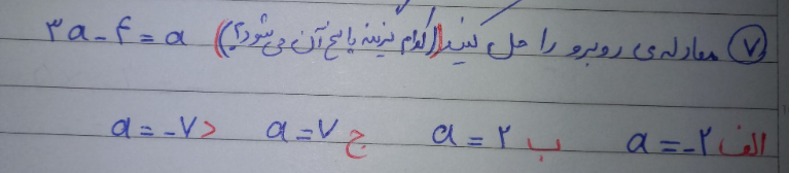 ۷ معادله‌ی روبرو را حل کنید (کدام گزینه پاسخ آن می‌شود؟) ۳a-۴=a
الف a=-۲ ب a=۲ ج a=۷ د a=-۷